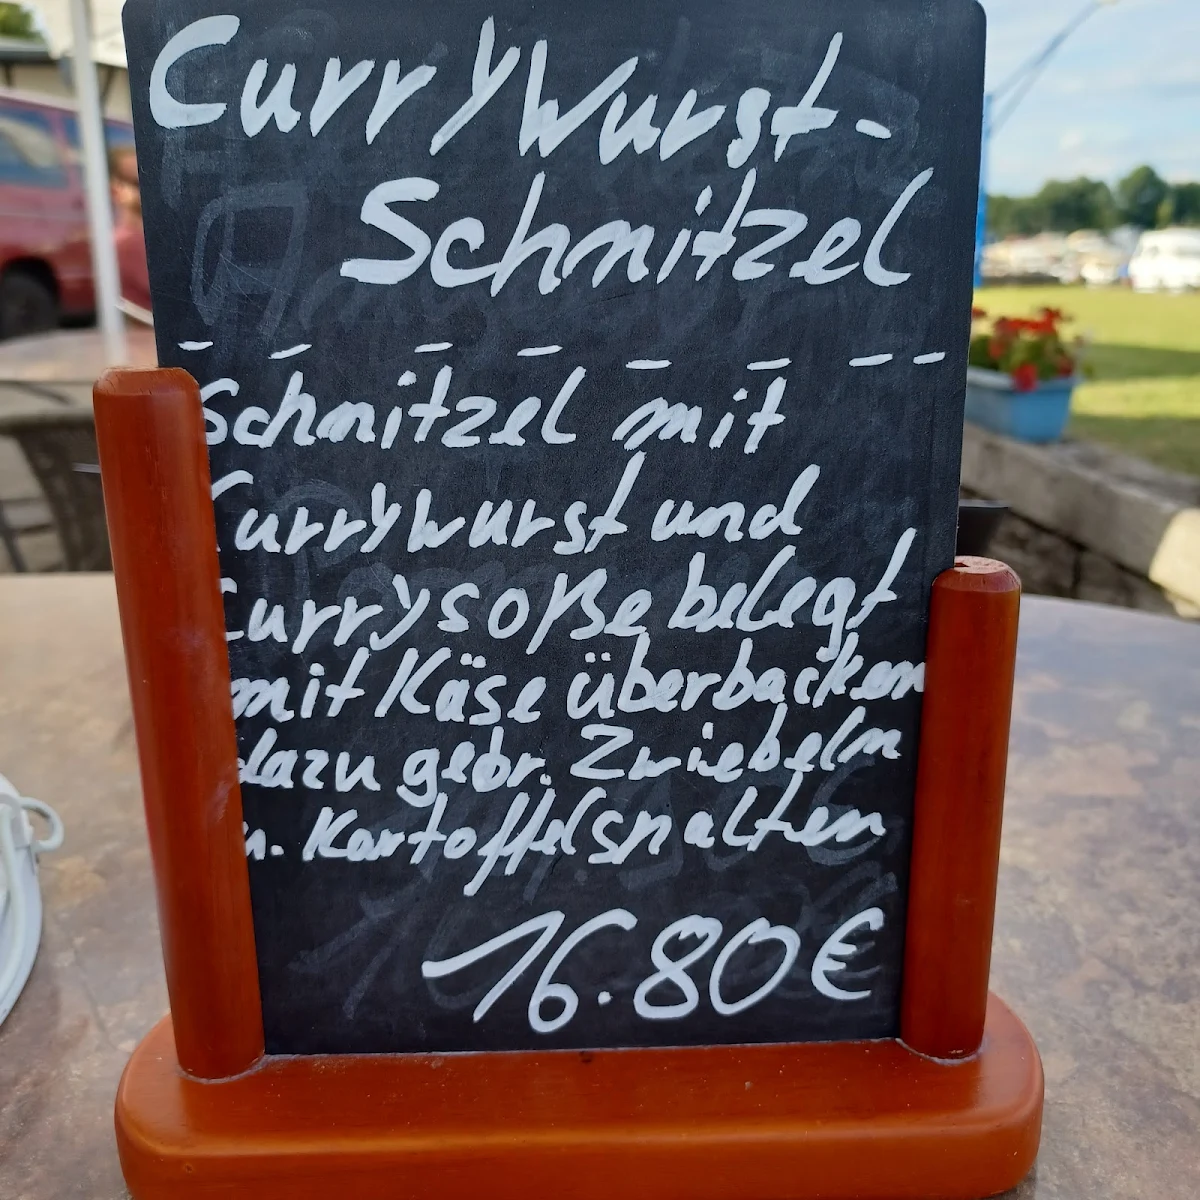 CurryWurst-
Schnitzel
- - - - - - - -
Schnitzel mit
Currywurst und
Currysoße belegt
mit Käse überbacken
dazu gebr. Zwiebeln
u. Kartoffelspalten
16.80€